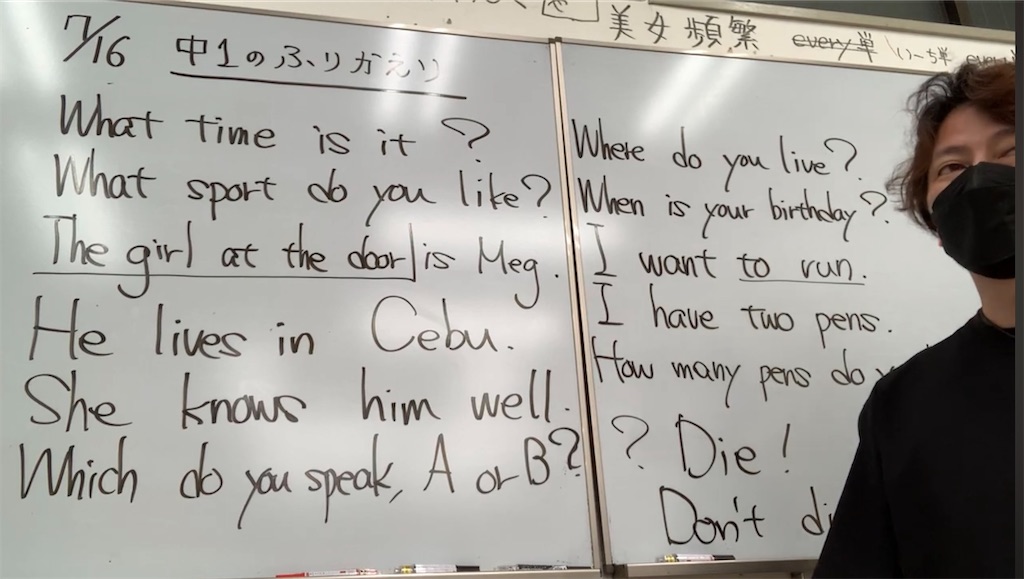 美女頻繁 every単
7/16 中1のふりかえり
What time is it ?
What sport do you like?
The girl at the door is Meg.
He lives in Cebu.
She knows him well.
Which do you speak, A or B?
Where do you live?
When is your birthday?
I want to run.
I have two pens.
How many pens do
? Die!
Don't